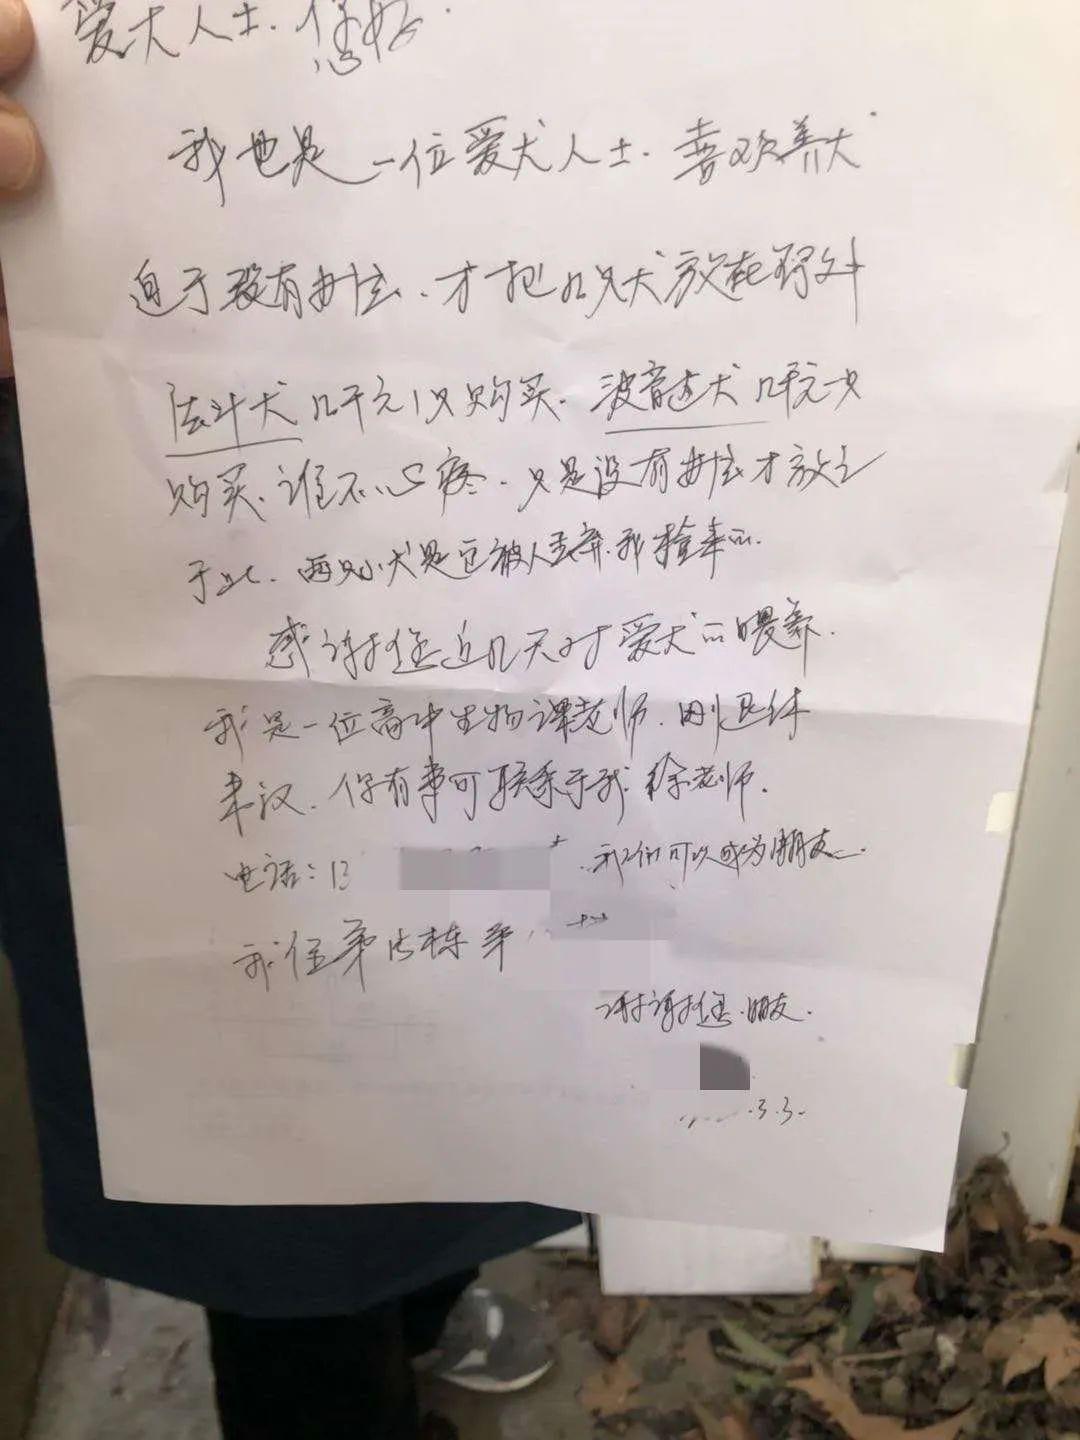 爱犬人士.您好
我也是一位爱犬人士.喜欢养犬.
迫于没有办法.才把几只犬放在野外
法斗犬几千元1只购买.波音达犬几千元一只
购买.谁不心疼.只是没有办法才放之
于此.两只小犬是它被人丢弃.我捡来的.
感谢您近几天对爱犬的喂养.
我是一位高中生物课老师.刚退休
来汉.你有事可联系于我.徐老师.
电话:13 我们可以成为朋友.
我住第 栋第
谢谢您.朋友.
.3.3.